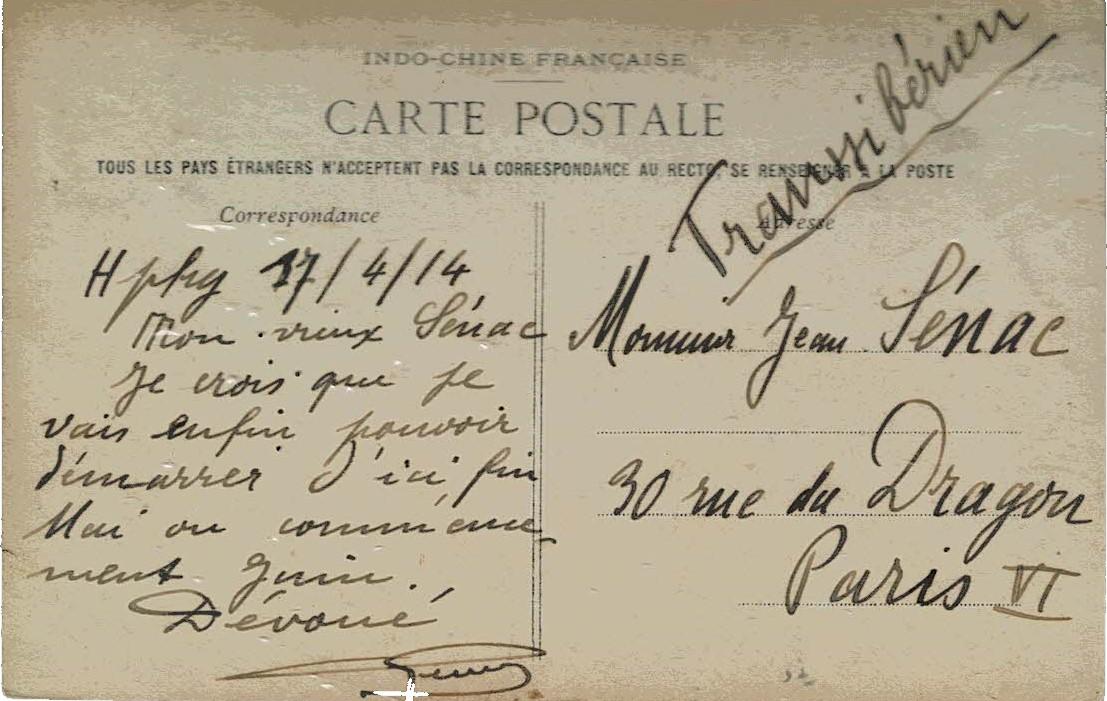 INDO-CHINE FRANÇAISE
CARTE POSTALE
TOUS LES PAYS ÉTRANGERS N'ACCEPTENT PAS LA CORRESPONDANCE AU RECTO, SE RENSEIGNER A LA POSTE
Transsibérien
Correspondance
Hphg 17/4/14
Mon vieux Sénac
Je crois que je
vais enfin pouvoir
démarrer d'ici fin
Mai ou commence-
ment Juin.
Dévoué
Adresse
Monsieur Jean Sénac
30 rue du Dragon
Paris VI